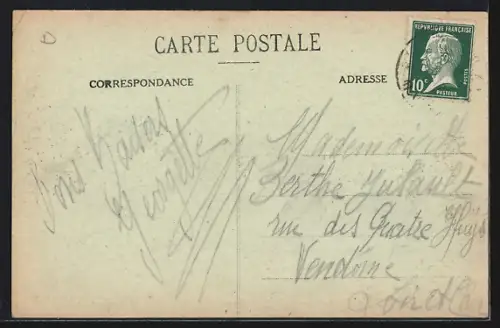 CARTE POSTALE
CORRESPONDANCE
ADRESSE
REPUBLIQUE FRANÇAISE
POSTES
10c
PASTEUR
Bons Baisers
Georgette
Mademoiselle
Berthe
rue des Quatre Huys
Vendôme
Loir et Cher